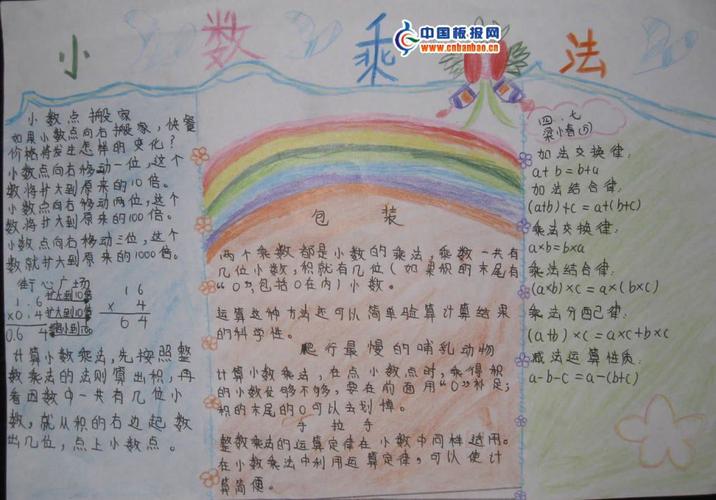 小数乘法
中国板报网
www.cnbanbao.cn
小数点搬家
如果小数点向右搬家，快餐
价格将发生怎样的变化？
小数点向右移动一位，这个
数将扩大到原来的10倍。
小数点向右移动两位，这个
数将扩大到原来的100倍。
小数点向右移动三位，这个
数就扩大到原来的1000倍。
街心广场
1.6 扩大到10倍 16
×0.4 扩大到10倍 × 4
0.64 缩小到 64
计算小数乘法，先按照整
数乘法的法则算出积，再
看因数中一共有几位小
数，就从积的右边起数
出几位，点上小数点。
包装
两个乘数都是小数的乘法，乘数一共有
几位小数，积就有几位（如果积的末尾有
“0”包括0在内）小数。
运算这种方法还可以简单验算计算结果
的科学性。
爬行最慢的哺乳动物
计算小数乘法，在点小数点时，乘得积
的小数位够不够，要在前面用“0”补足；
积的末尾的0可以去掉。
手拉手
整数乘法的运算定律在小数中同样适用。
在小数乘法中利用运算定律，可以使计
算简便。
四、七
梁小春(5)
加法交换律：
a+b=b+a
加法结合律：
(a+b)+c=a+(b+c)
乘法交换律：
a×b=b×a
乘法结合律：
(a×b)×c=a×(b×c)
乘法分配律：
(a+b)×c=a×c+b×c
减法运算性质：
a-b-c=a-(b+c)